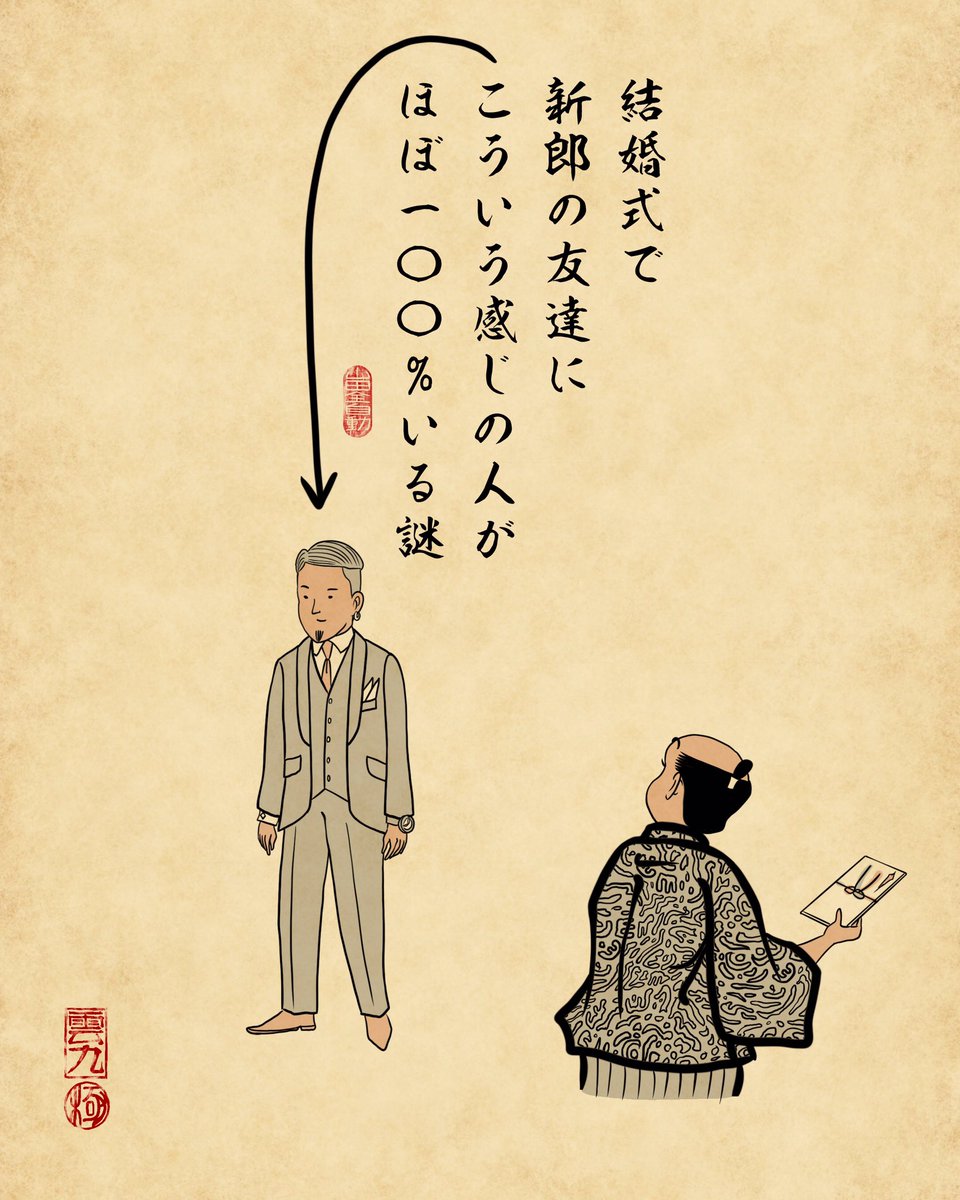 結婚式で
新郎の友達に
こういう感じの人が
ほぼ一〇〇%いる謎